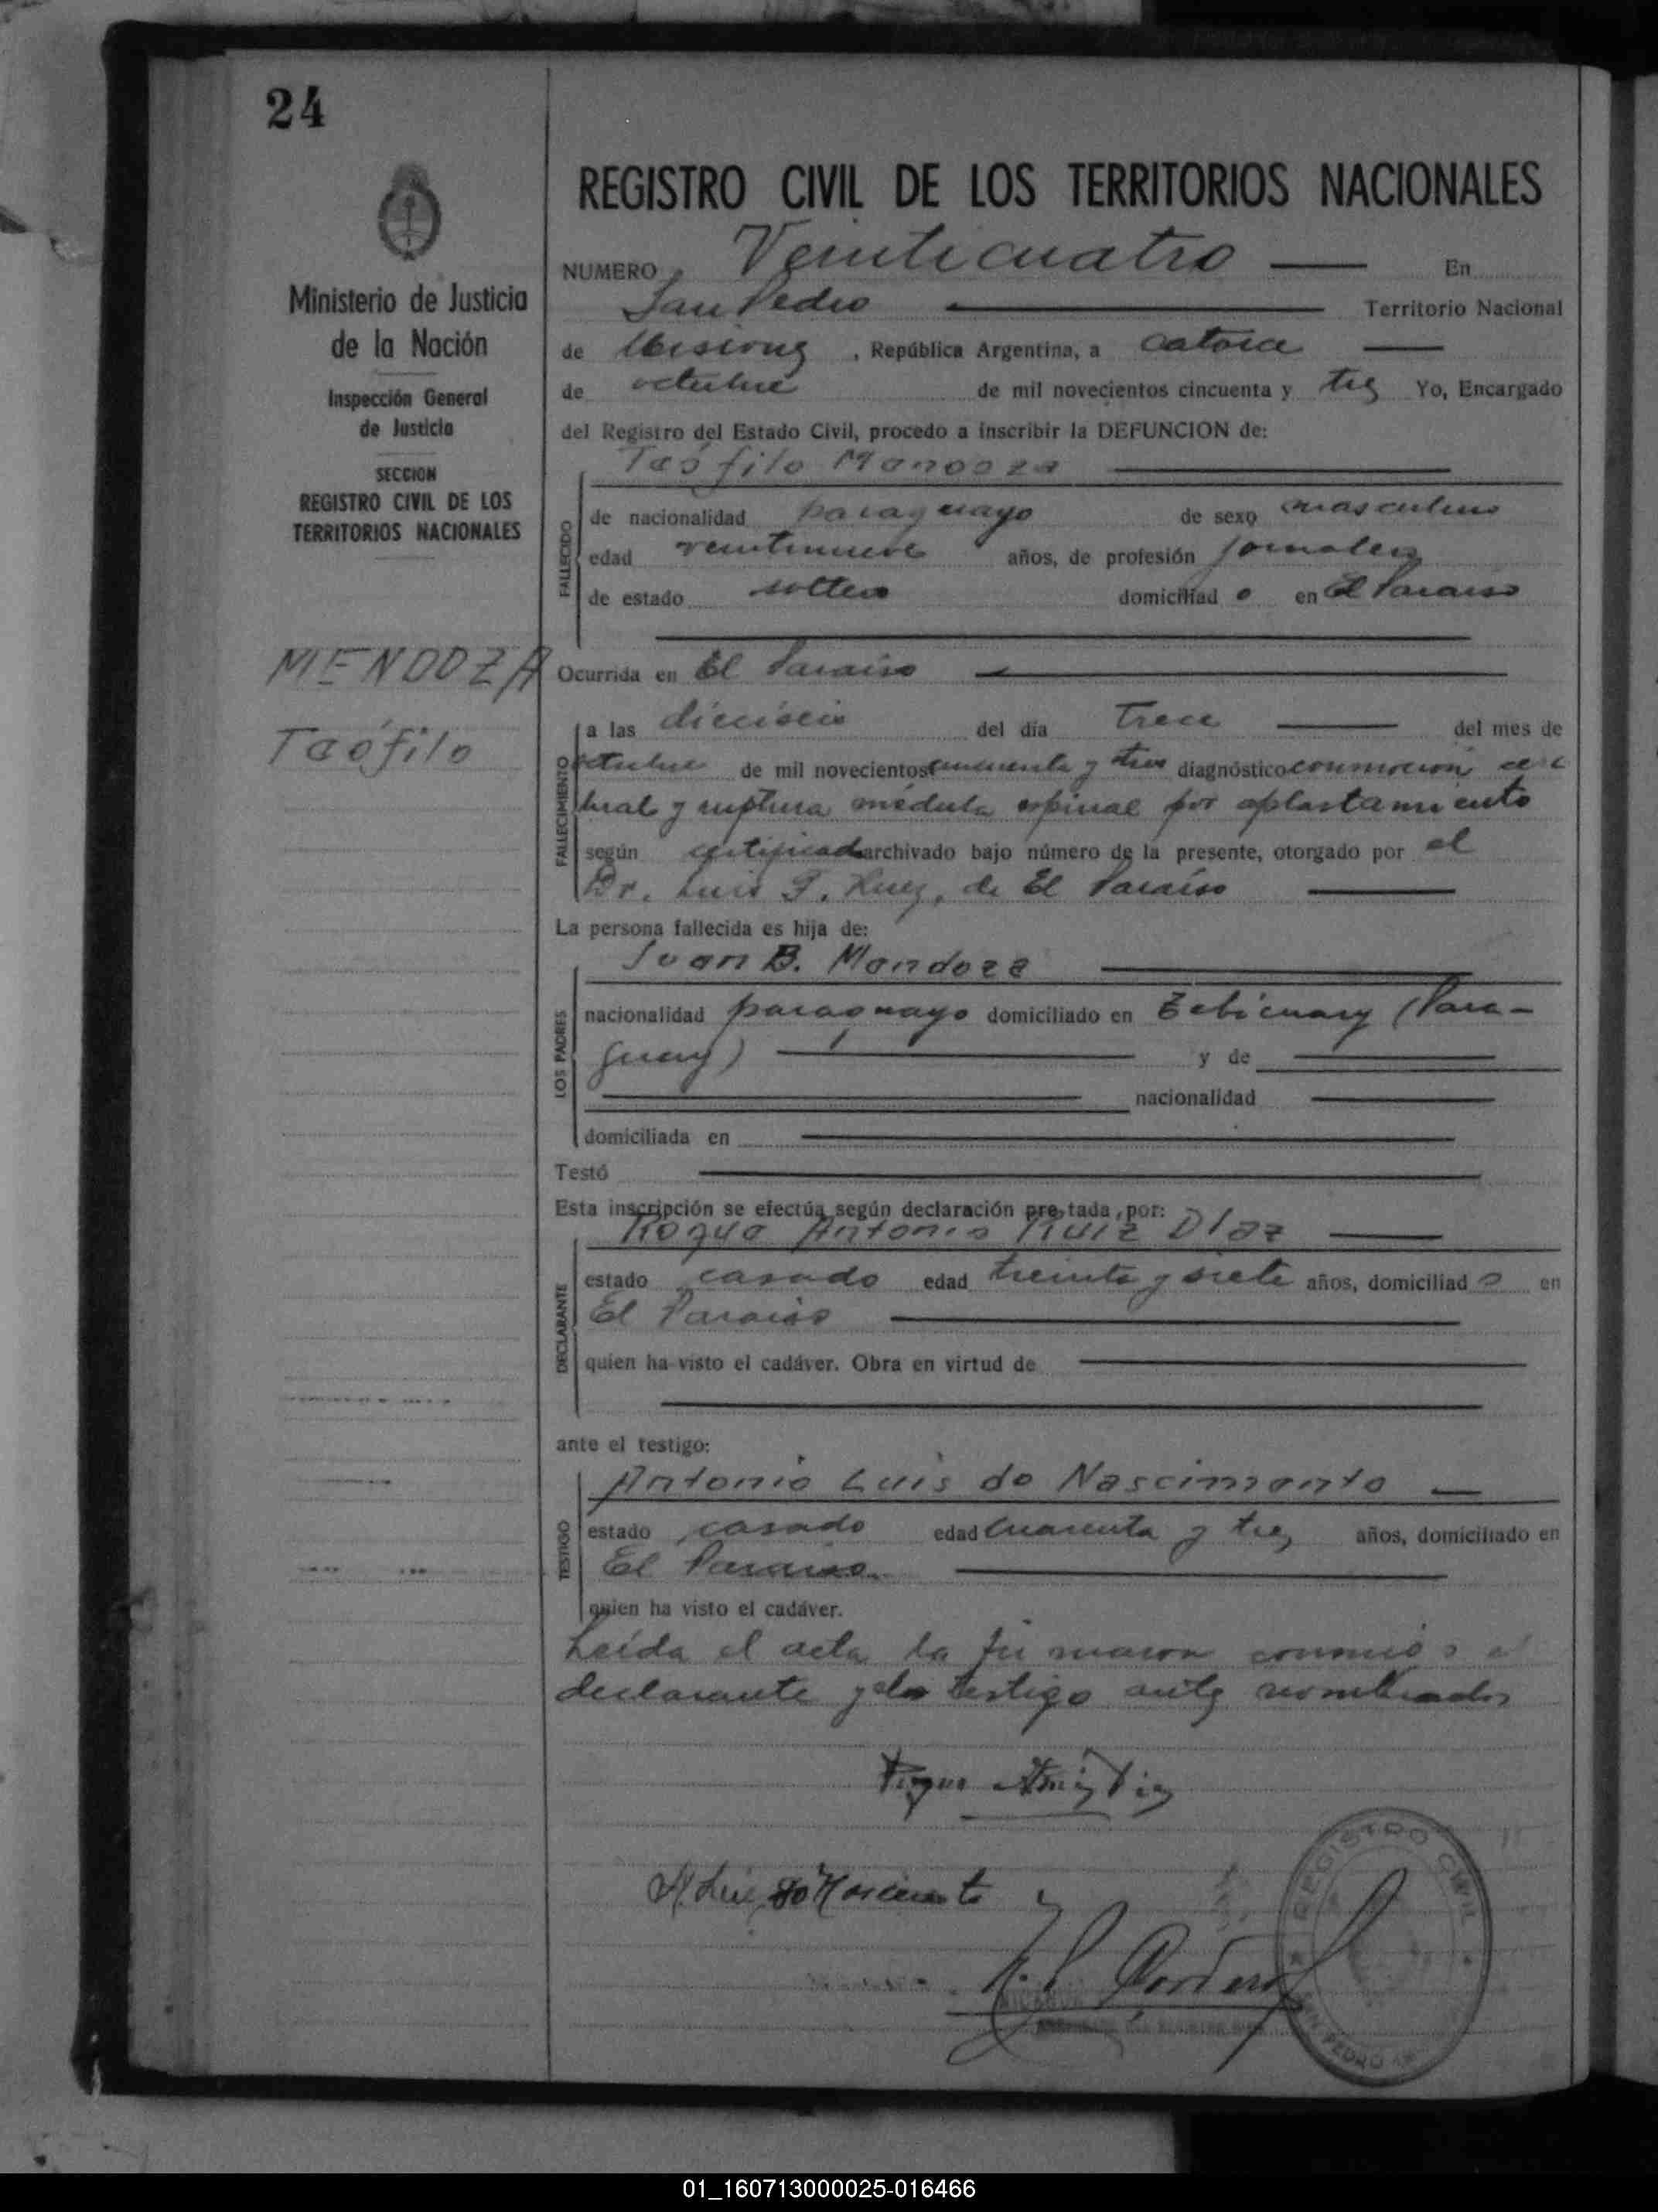 24
Ministerio de Justicia
de la Nación
Inspección General
de Justicia
SECCION
REGISTRO CIVIL DE LOS
TERRITORIOS NACIONALES
MENDOZA
Teófilo
REGISTRO CIVIL DE LOS TERRITORIOS NACIONALES
NUMERO Veinticuatro — En
San Pedro — Territorio Nacional
de Misiones, República Argentina, a catorce —
de octubre de mil novecientos cincuenta y tres Yo, Encargado
del Registro del Estado Civil, procedo a inscribir la DEFUNCION de:
Teófilo Mendoza —
FALLECIDO
de nacionalidad paraguayo de sexo masculino
edad veintinueve años, de profesión jornalero
de estado soltero domiciliad o en El Paraiso
Ocurrida en El Paraiso —
FALLECIMIENTO
a las dieciseis del día trece — del mes de
octubre de mil novecientos cincuenta y tres diagnóstico conmoción cere
bral y ruptura médula espinal por aplastamiento
según certificado archivado bajo número de la presente, otorgado por el
Dr. Luis F. de El Paraíso —
La persona fallecida es hija de:
Juan B. Mendoza —
LOS PADRES
nacionalidad paraguayo domiciliado en Tebicuary (Para-
guay) — y de —
— nacionalidad —
domiciliada en —
Testó —
Esta inscripción se efectúa según declaración prestada, por:
Roque Antonio Ruiz Díaz —
DECLARANTE
estado casado edad treinta y siete años, domiciliad o en
El Paraiso —
quien ha visto el cadáver. Obra en virtud de —
ante el testigo:
Antonio Luis do Nascimento —
TESTIGO
estado casado edad cuarenta y tres años, domiciliado en
El Paraiso. —
quien ha visto el cadáver.
Leída el acta la firmaron conmigo el
declarante y el testigo antes nombrados
A. Luis do Nascimento
REGISTRO CIVIL
SAN PEDRO
01_160713000025-016466